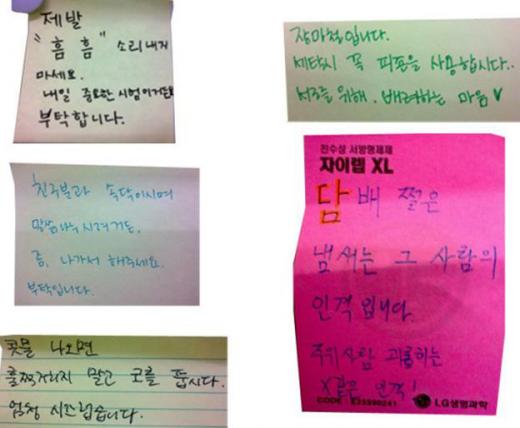 제발
"흠 흠" 소리내지
마세요.
내일 중요한 시험이거든요
부탁합니다.
장마철입니다.
세탁시 꼭 피죤을 사용합시다..
서로를 위해. 배려하는 마음♥
친구분과 속닥이시며
말씀나누시려거든,
좀, 나가서 해주세요.
부탁입니다.
진수상 서방형제제
자이렙 XL
담배 쩔은
냄새는 그 사람의
인격입니다.
주위사람 괴롭히는
X같은 인격!
CODE : E25590241
LG생명과학
콧물 나오면
훌쩍거리지 말고 코를 풉시다.
엄청 시끄럽습니다.